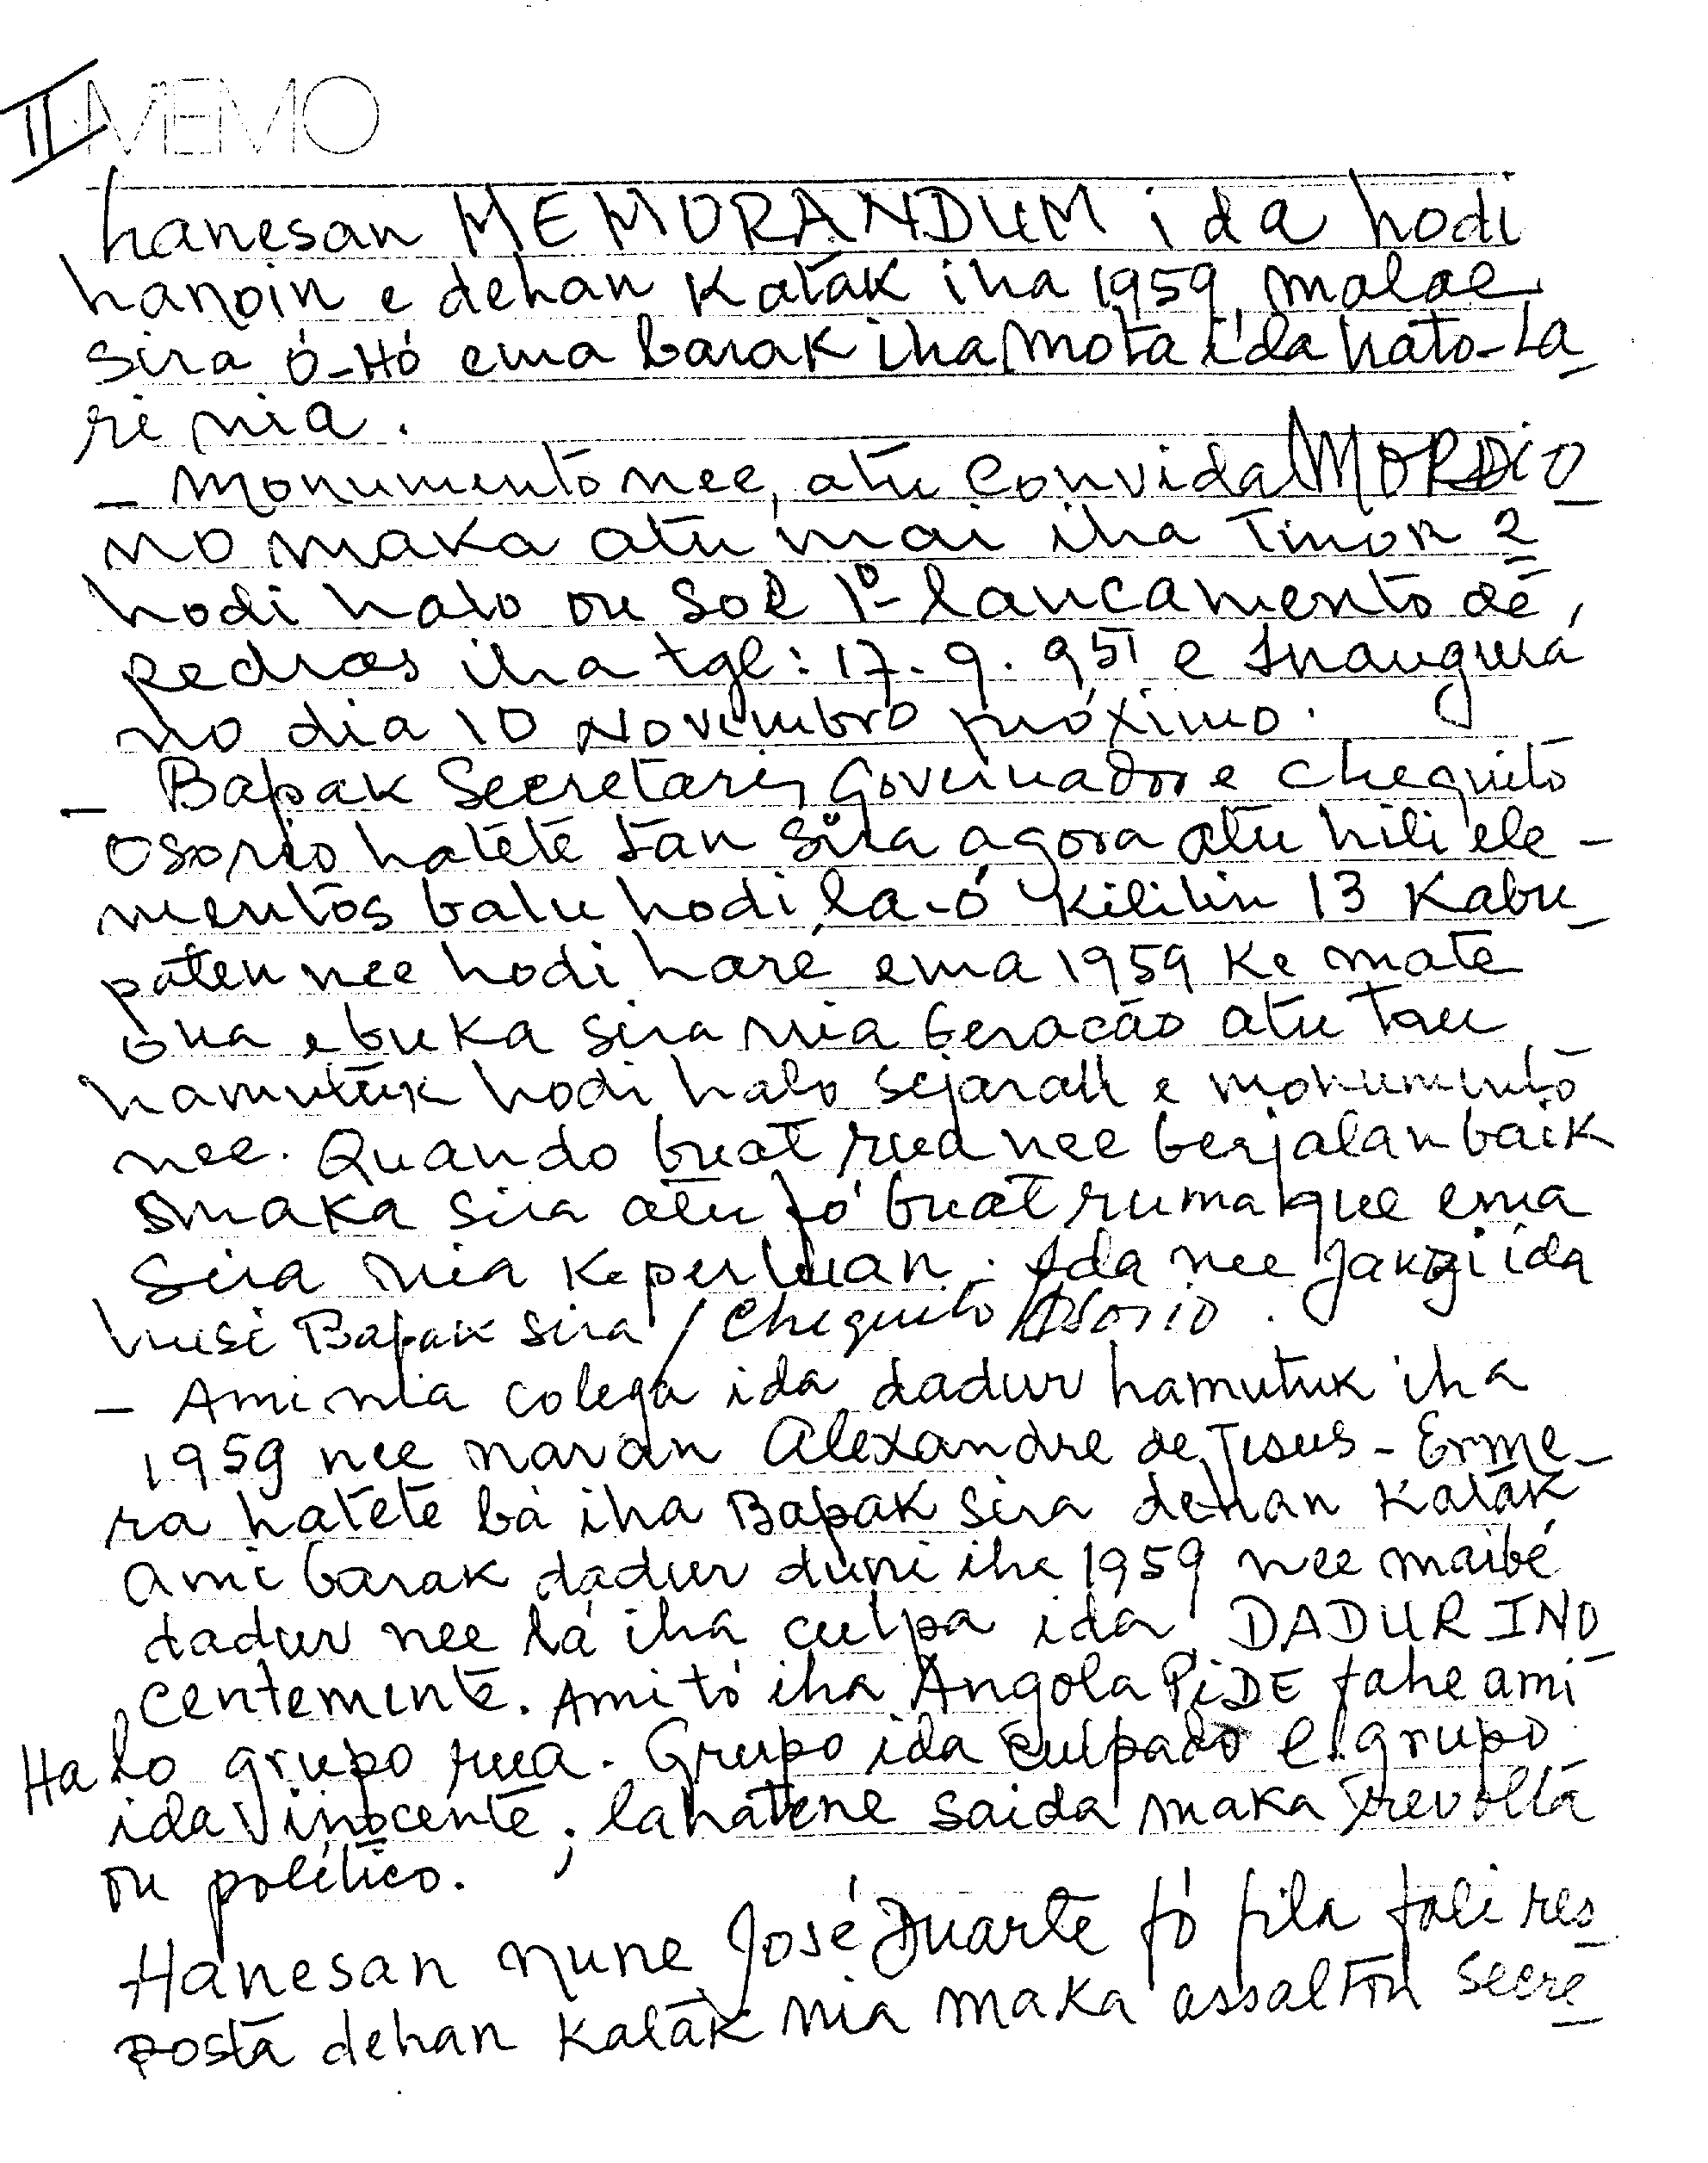 II MEMO
hanesan MEMORANDUM ida hodi
hanoin e dehan Katák iha 1959, malae
sira ó-Hó ema barak iha mota ida hato-La
ri nia.
- Monumento nee, atu convida MORDIO-
NO maka atu mai iha Timor 2
hodi halo ou soe 1º lancamento de
pedras iha tgl: 17.9.951 e Inaugura
no dia 10 Novembro próximo.
- Bapak Secretaris, Governador e chequito
Osorio hatete tan sira agora atu hili ele-
mentos balu hodi la-ó kililin 13 Kabu-
paten nee hodi haré ema 1959 Ke mate
ona e buka sira nia Geracão atu tau
hamutuk hodi halo sejarah e monumento
nee. Quando buat rua nee berjalan baik
maka sira atu fó buat ruma que ema
sira nia Keperluan. Ida nee janji ida
husi Bapak sira / Chequito Osorio.
- Ami nia colega ida dadur hamutuk iha
1959 nee naran Alexandre de Jesus - Erme-
ra hatete bá iha Bapak sira dehan Katák
ami barak dadur duni iha 1959 nee maibé
dadur nee lá iha culpa ida DADUR INO
centemente. Ami tó iha Angola PiDE fahe ami
Halo grupo rua. Grupo ida culpado e grupo
ida inocente; la hatene saida maka revolta
ou político.
Hanesan nune José Duarte fó fila fali res
posta dehan Katák nia maka assalton secre